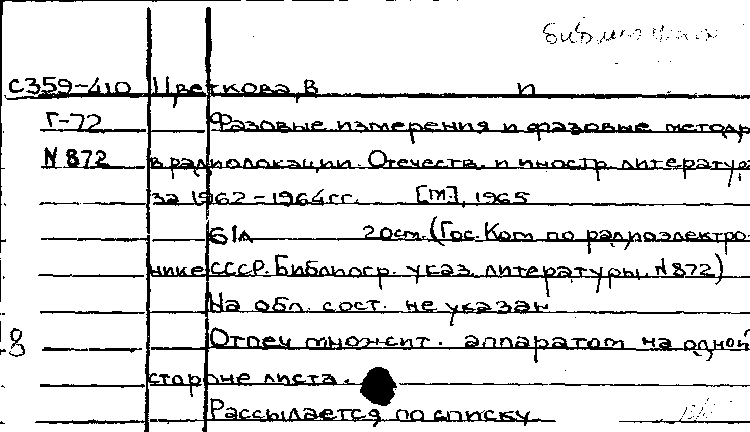 Библиография
С359-410 Цветкова, В П
Г-72 Фазовые измерения и фазовые методы
N 872 в радиолокации. Отечеств. и иностр. литература
за 1962-1964гг. [М], 1965
61л 20см. (Гос. Ком по радиоэлектро-
нике СССР. Библиогр. указ. литературы. N 872)
На обл. сост. не указан
Отпеч множит. аппаратом на одной
стороне листа.
Рассылается по списку